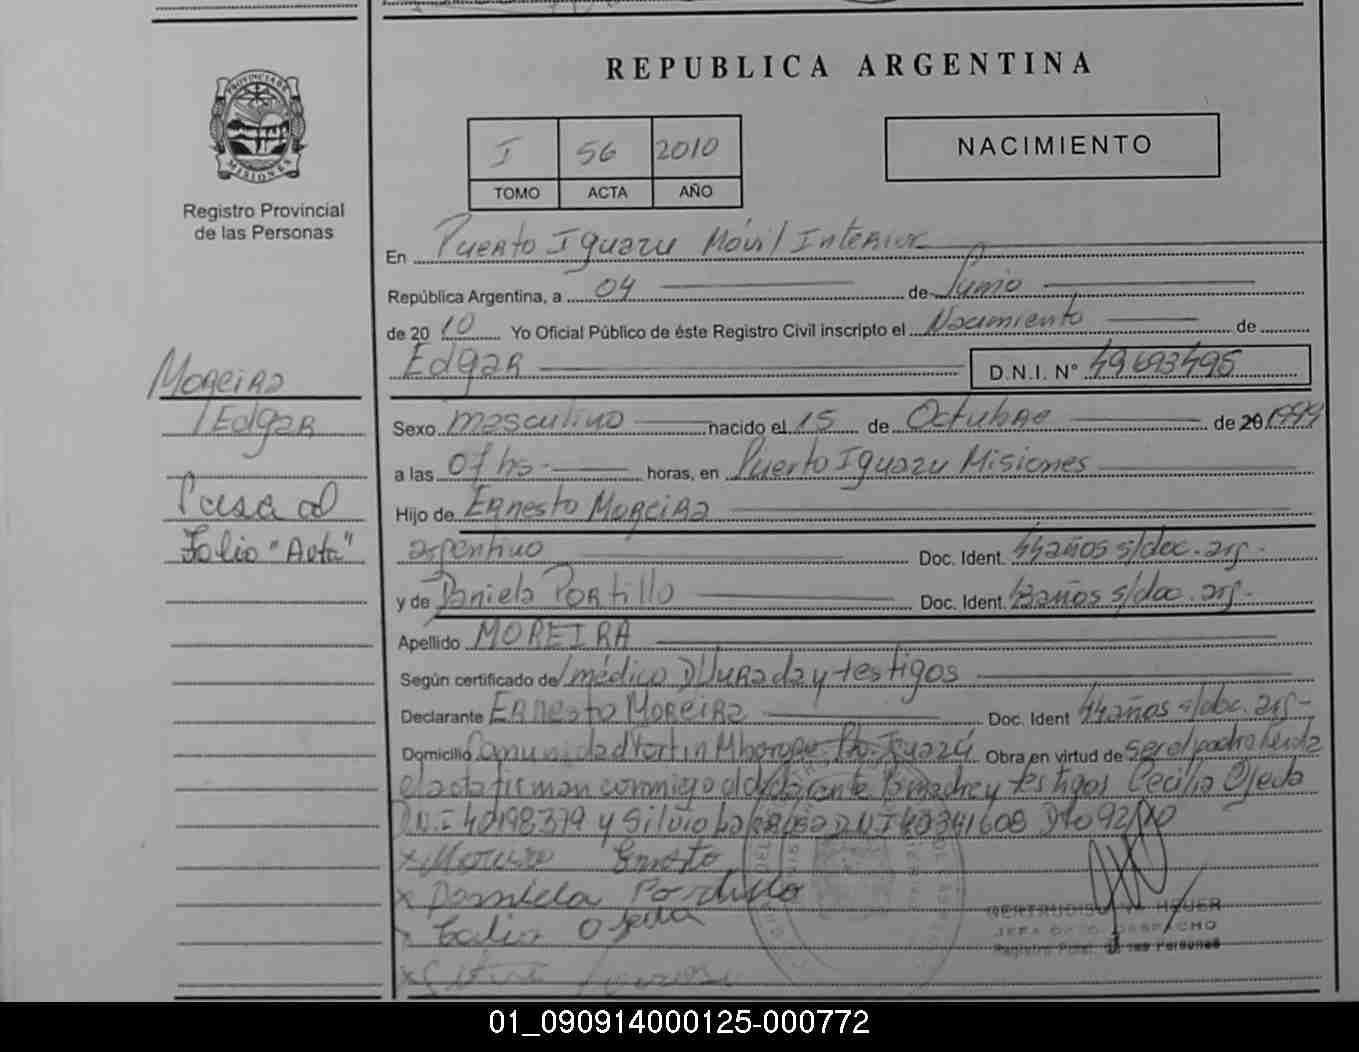 REPUBLICA ARGENTINA
PROVINCIA DE
MISIONES
Registro Provincial
de las Personas
I 56 2010
TOMO ACTA AÑO
NACIMIENTO
En Puerto Iguazu Móvil Interior
República Argentina, a 04 de Junio
de 2010 Yo Oficial Público de éste Registro Civil inscripto el Nacimiento de
Edgar D.N.I. N° 49.693495
Moreira
Edgar
Pasa al
Folio "Acta"
Sexo masculino nacido el 15 de Octubre de 20 1999
a las 01 hs. horas, en Puerto Iguazu Misiones
Hijo de Ernesto Moreira
argentino Doc. Ident. 44 años s/doc. arg.
y de Daniela Portillo Doc. Ident. años s/doc. arg.
Apellido MOREIRA
Según certificado de médico D/Jurada y testigos
Declarante Ernesto Moreira Doc. Ident 44 años s/doc. arg.
Domicilio Comunidad Fortin Mbororo Pto. Iguazú Obra en virtud de ser el padre leida
el acta firman conmigo el declarante la madre y testigos Cecilia Ojeda
D.N.I 40198379 y Silvio D.N.I 40341608 Dto 92/10
x Moreira Ernesto
x Daniela Portillo
x Ojeda
x
GERTRUDIS HEUER
JEFA DE DESPACHO
Registro Pcial. de las Personas
01_090914000125-000772